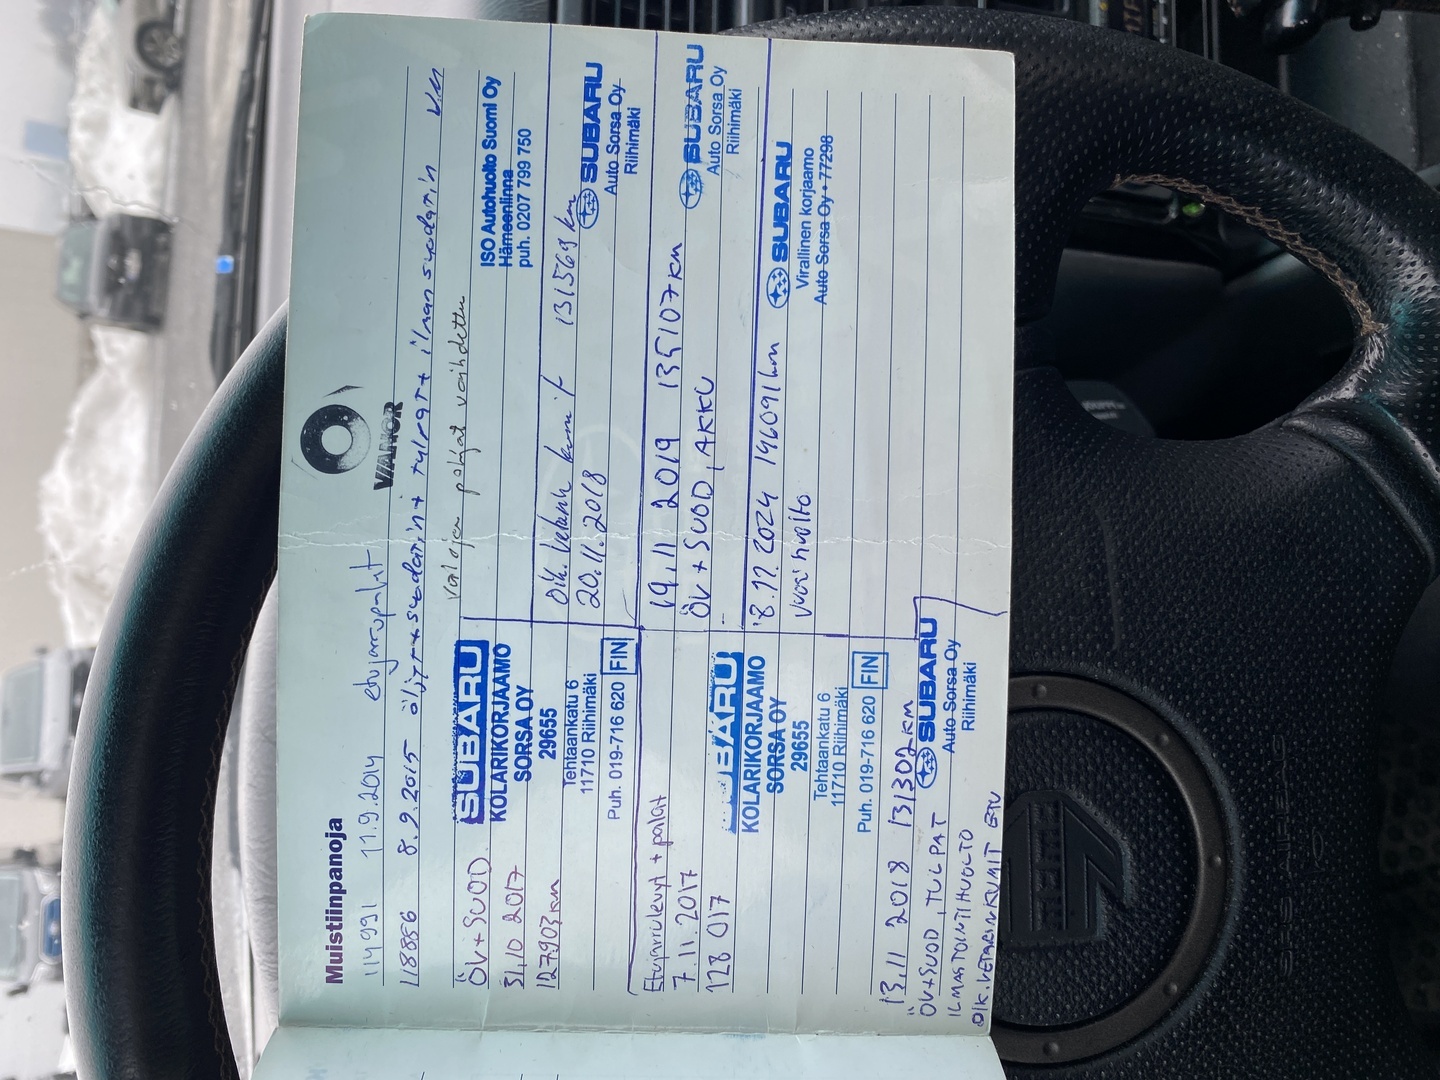 Muistiinpanoja
VIANOR
114991 11.9.2014 etujarrupalat
118856 8.9.2015 öljyt+suodatin+tulpat+ilmansuodatin
valojen pohjat vaihdettu
ISO Autohuolto Suomi Oy
Hämeenlinna
puh. 0207 799 750
ÖV+SUOD
31.10 2017
127903km
SUBARU
KOLARIKORJAAMO
SORSA OY
29655
Tehtaankatu 6
11710 Riihimäki
Puh. 019-716 620 FIN
Etujarrulevyt + palat
7.11.2017
128 017
SUBARU
KOLARIKORJAAMO
SORSA OY
29655
Tehtaankatu 6
11710 Riihimäki
Puh. 019-716 620 FIN
13.11 2018 131302km
ÖV+SUOD, TULPAT
ILMASTOINTIHUOLTO
OIK. VETARINKUMIT ETU
SUBARU
Auto Sorsa Oy
Riihimäki
Oik. Vetarin kumit 131569km
20.11.2018
SUBARU
Auto Sorsa Oy
Riihimäki
19.11 2019 135107km
ÖV + SUOD, AKKU
SUBARU
Auto Sorsa Oy
Riihimäki
18.12.2024 146091km
vuosihuolto
SUBARU
Virallinen korjaamo
Auto Sorsa Oy • 77298
SRS AIRBAG